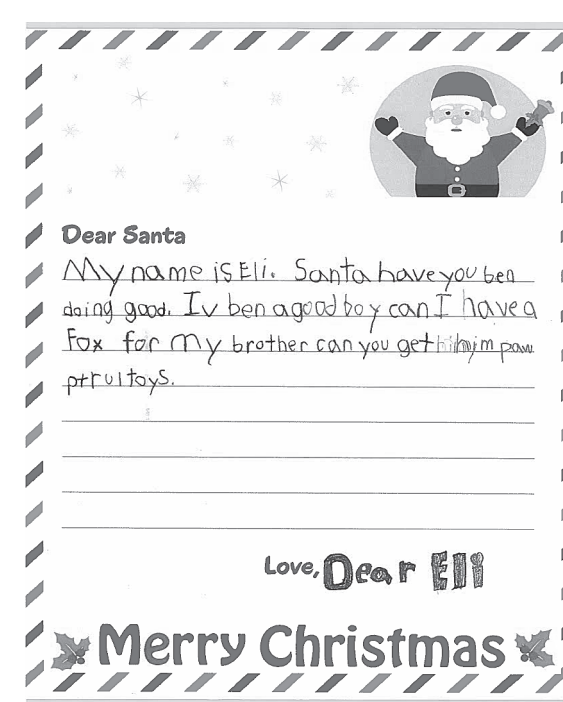 Dear Santa
My name is Eli. Santa have you ben
doing good. Iv ben a good boy can I have a
Fox for My brother can you get him paw
ptrul toys.
Love, Dear Eli
Merry Christmas